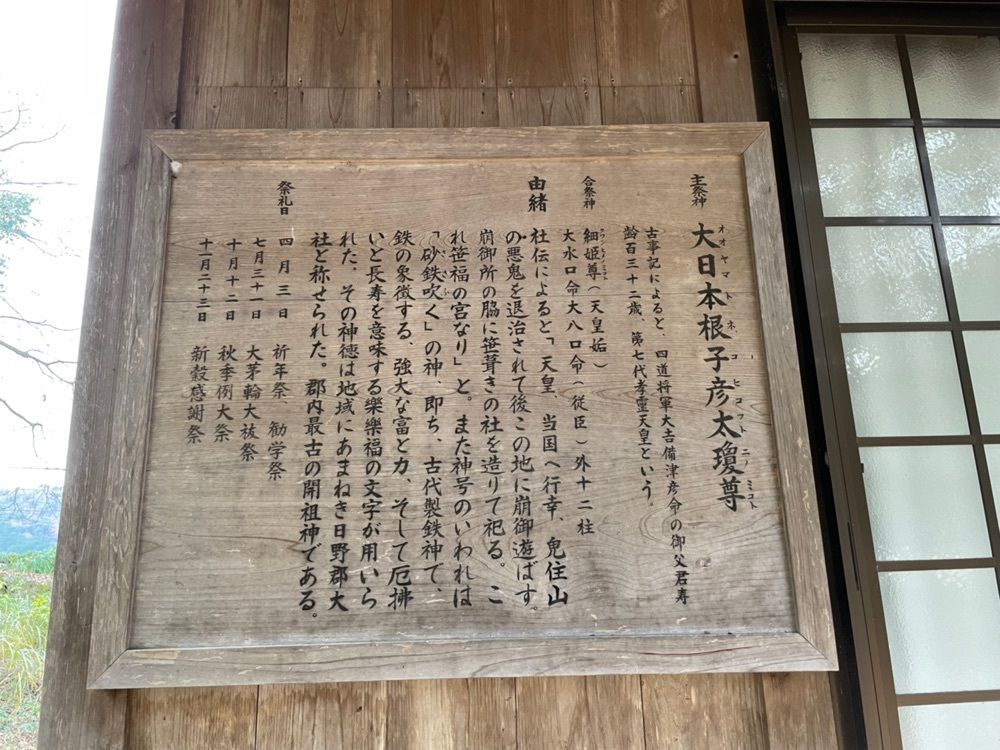 主祭神 大日本根子彦太瓊尊
オオヤマトネコヒコフトニノミコト
古事記によると、四道将軍大吉備津彦命の御父君寿
齢百三十二歳 第七代孝霊天皇という。
合祭神 細姫尊(天皇姤)
大水口命大八口命(従臣)外十二柱
由緒 社伝によると「天皇、当国へ行幸、鬼住山
の悪鬼を退治されて後この地に崩御遊ばす。
崩御所の脇に笹葺きの社を造りて祀る。こ
れ笹福の宮なり」と。また神号のいわれは
「砂鉄吹く」の神、即ち、古代製鉄神で、
鉄の象徴する、強大な富と力、そして厄拂
いと長寿を意味する樂樂福の文字が用いら
れた。その神徳は地域にあまねき日野郡大
社と称せられた。郡内最古の開祖神である。
祭礼日 四月三日 祈年祭、勧学祭
七月三十一日 大茅輪大祓祭
十月十二日 秋季例大祭
十一月二十三日 新穀感謝祭